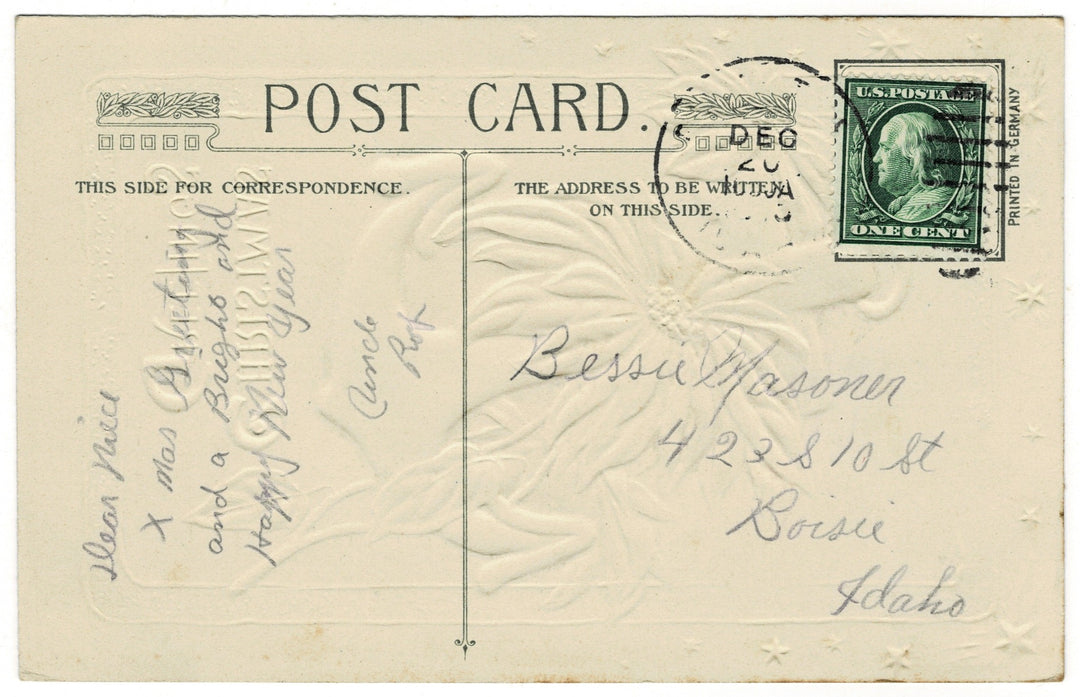 POST CARD.
THIS SIDE FOR CORRESPONDENCE.
THE ADDRESS TO BE WRITTEN
ON THIS SIDE.
DEC
20
U.S. POSTAGE
ONE CENT
PRINTED IN GERMANY
Dear Niece
X mas Greeting
and a Bright and
Happy New Year
Uncle
Bessie Masoner
423 S 10 St
Boisie
Idaho